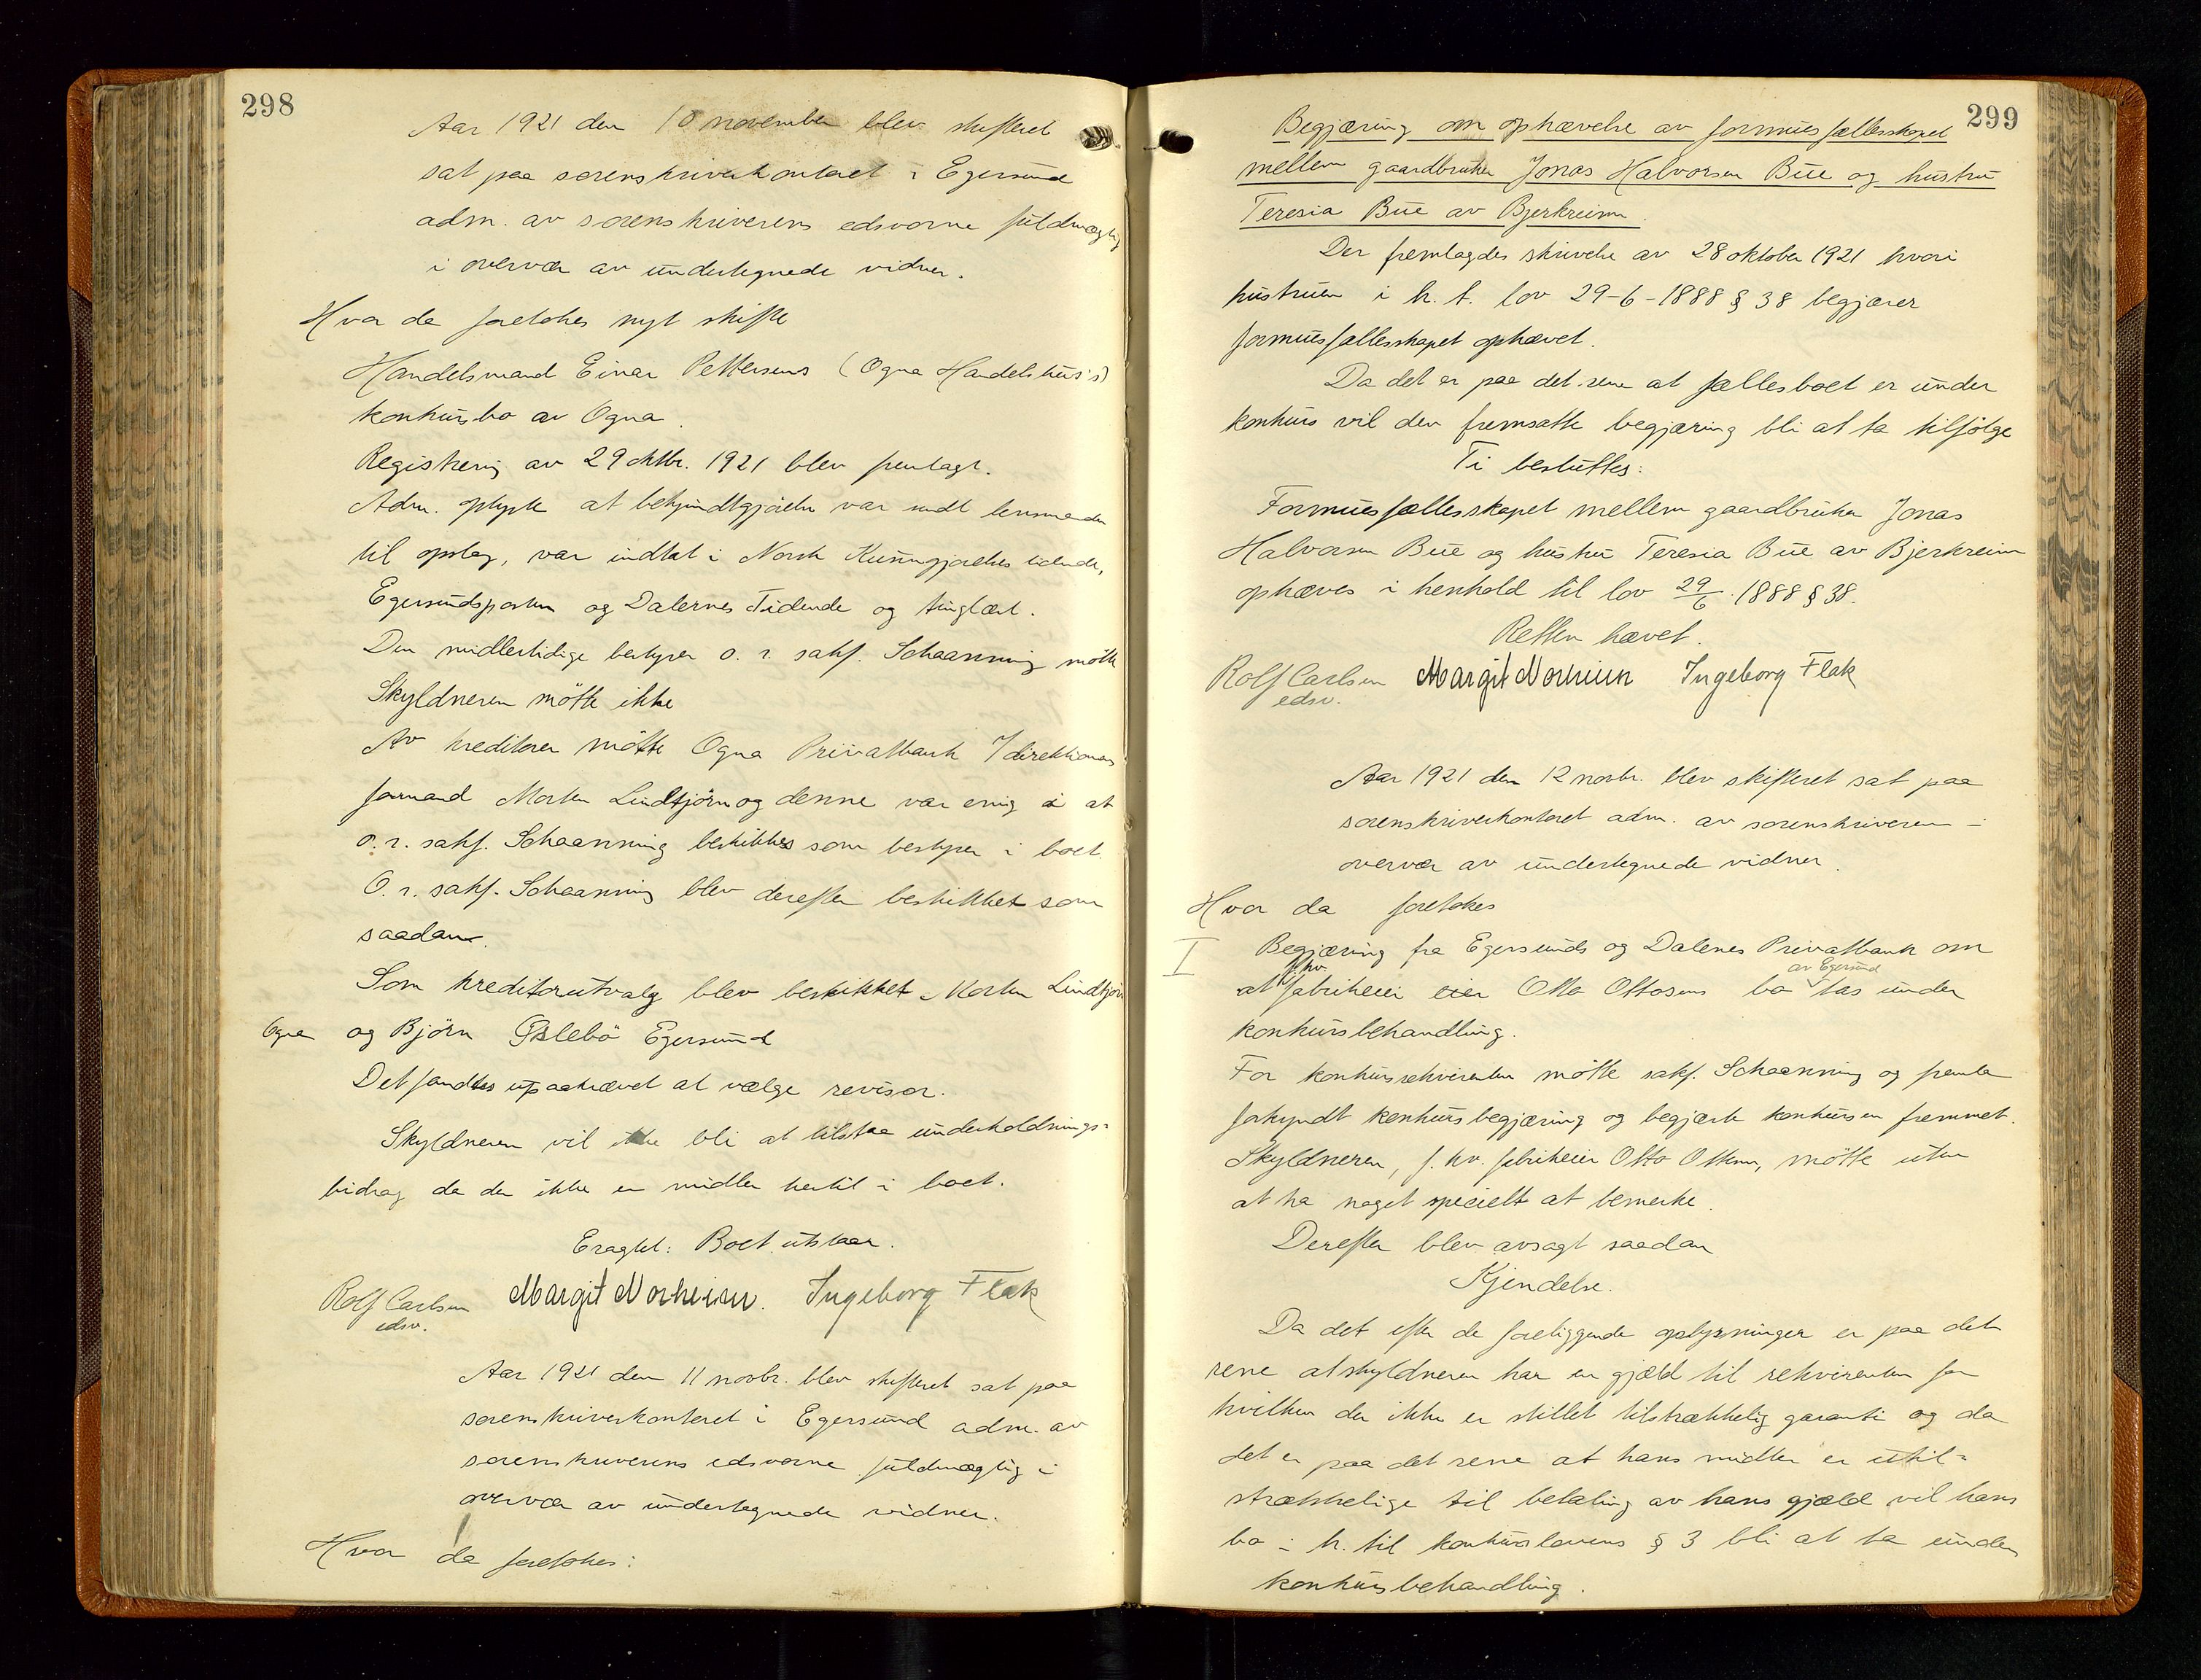 298
Aar 1921 den 10 november blev skifteret
sat paa sorenskriverkontoret i Egersund
adm. av sorenskriverens edsvorne fuldmægtig
i overvær av undertegnede vidner.
Hvor da foretokes nyt skifte
Handelsmand Einar Pettersens (Ogna Handelshus's)
konkursbo av Ogna.
Registrering av 29 oktbr. 1921 blev fremlagt.
Adm. oplyste at bekjendtgjørelse var sendt lensmanden
til opslag, var indtat i Norsk Kunngjørelses tidende,
Egersundsposten og Dalernes Tidende og tinglæst.
Den midlertidige bestyrer o. r. sakf. Schaanning møtte
Skyldneren møtte ikke
Av kreditorer møtte Ogna Privatbank v/ direktionens
formand Morten Lindtjörn og denne var enig i at
o. r. sakf. Schaanning beskikkes som bestyrer i boet.
O. r. sakf. Schaanning blev derefter beskikket som
saadan.
Som kreditorutvalg blev beskikket Morten Lindtjörn
Ogna og Björn Eslebö Egersund
Det fandtes upaakrævet at vælge revisor.
Skyldneren vil ikke bli at tilstaa underholdnings-
bidrag da der ikke er midler hertil i boet.
Eragtet: Boet utstaar.
Rolf Carlsen Margit Norheim. Ingeborg Flak
edsv.
Aar 1921 den 11 novbr. blev skifteret sat paa
sorenskriverkontoret i Egersund adm. av
sorenskriverens edsvorne fuldmægtig i
overvær av undertegnede vidner.
Hvor da foretokes:
299
Begjæring om ophævelse av formuesfællesskapet
mellem gaardbruker Jonas Halvorsen Bue og hustru
Teresia Bue av Bjerkreim.
Der fremlagdes skrivelse av 28 oktober 1921 hvori
hustruen i h. t. lov 29-6-1888 § 38 begjærer
formuesfællesskapet ophævet.
Da det er paa det rene at fællesboet er under
konkurs vil den fremsatte begjæring bli at ta tilfölge
Ti besluttes:
Formuesfællesskapet mellem gaardbruker Jonas
Halvorsen Bue og hustru Teresia Bue av Bjerkreim
ophæves i henhold til lov 29/6 1888 § 38.
Retten hævet.
Rolf Carlsen Margit Norheim Ingeborg Flak
edsv.
Aar 1921 den 12 novbr. blev skifteret sat paa
sorenskriverkontoret adm. av sorenskriveren i
overvær av undertegnede vidner.
Hvor da foretokes
I Begjæring fra Egersunds og Dalenes Privatbank om
at f.hv. fabrikeier eier Otto Ottosens bo av Egersund tas under
konkursbehandling.
For konkursrekvirenten møtte sakf. Schaanning og fremla
forkyndt konkursbegjæring og begjærte konkursen fremmet.
Skyldneren, f. hv. fabrikeier Otto Ottosen, møtte uten
at ha noget specielt at bemerke.
Derefter blev avsagt saadan
Kjendelse.
Da det efter de foreliggende oplysninger er paa det
rene at skyldneren har en gjæld til rekvirenten for
hvilken der ikke er stillet tilstrækkelig garanti og da
det er paa det rene at hans midler er util-
strækkelige til betaling av hans gjæld vil hans
bo i h. til konkurslovens § 3 bli at ta under
konkursbehandling.